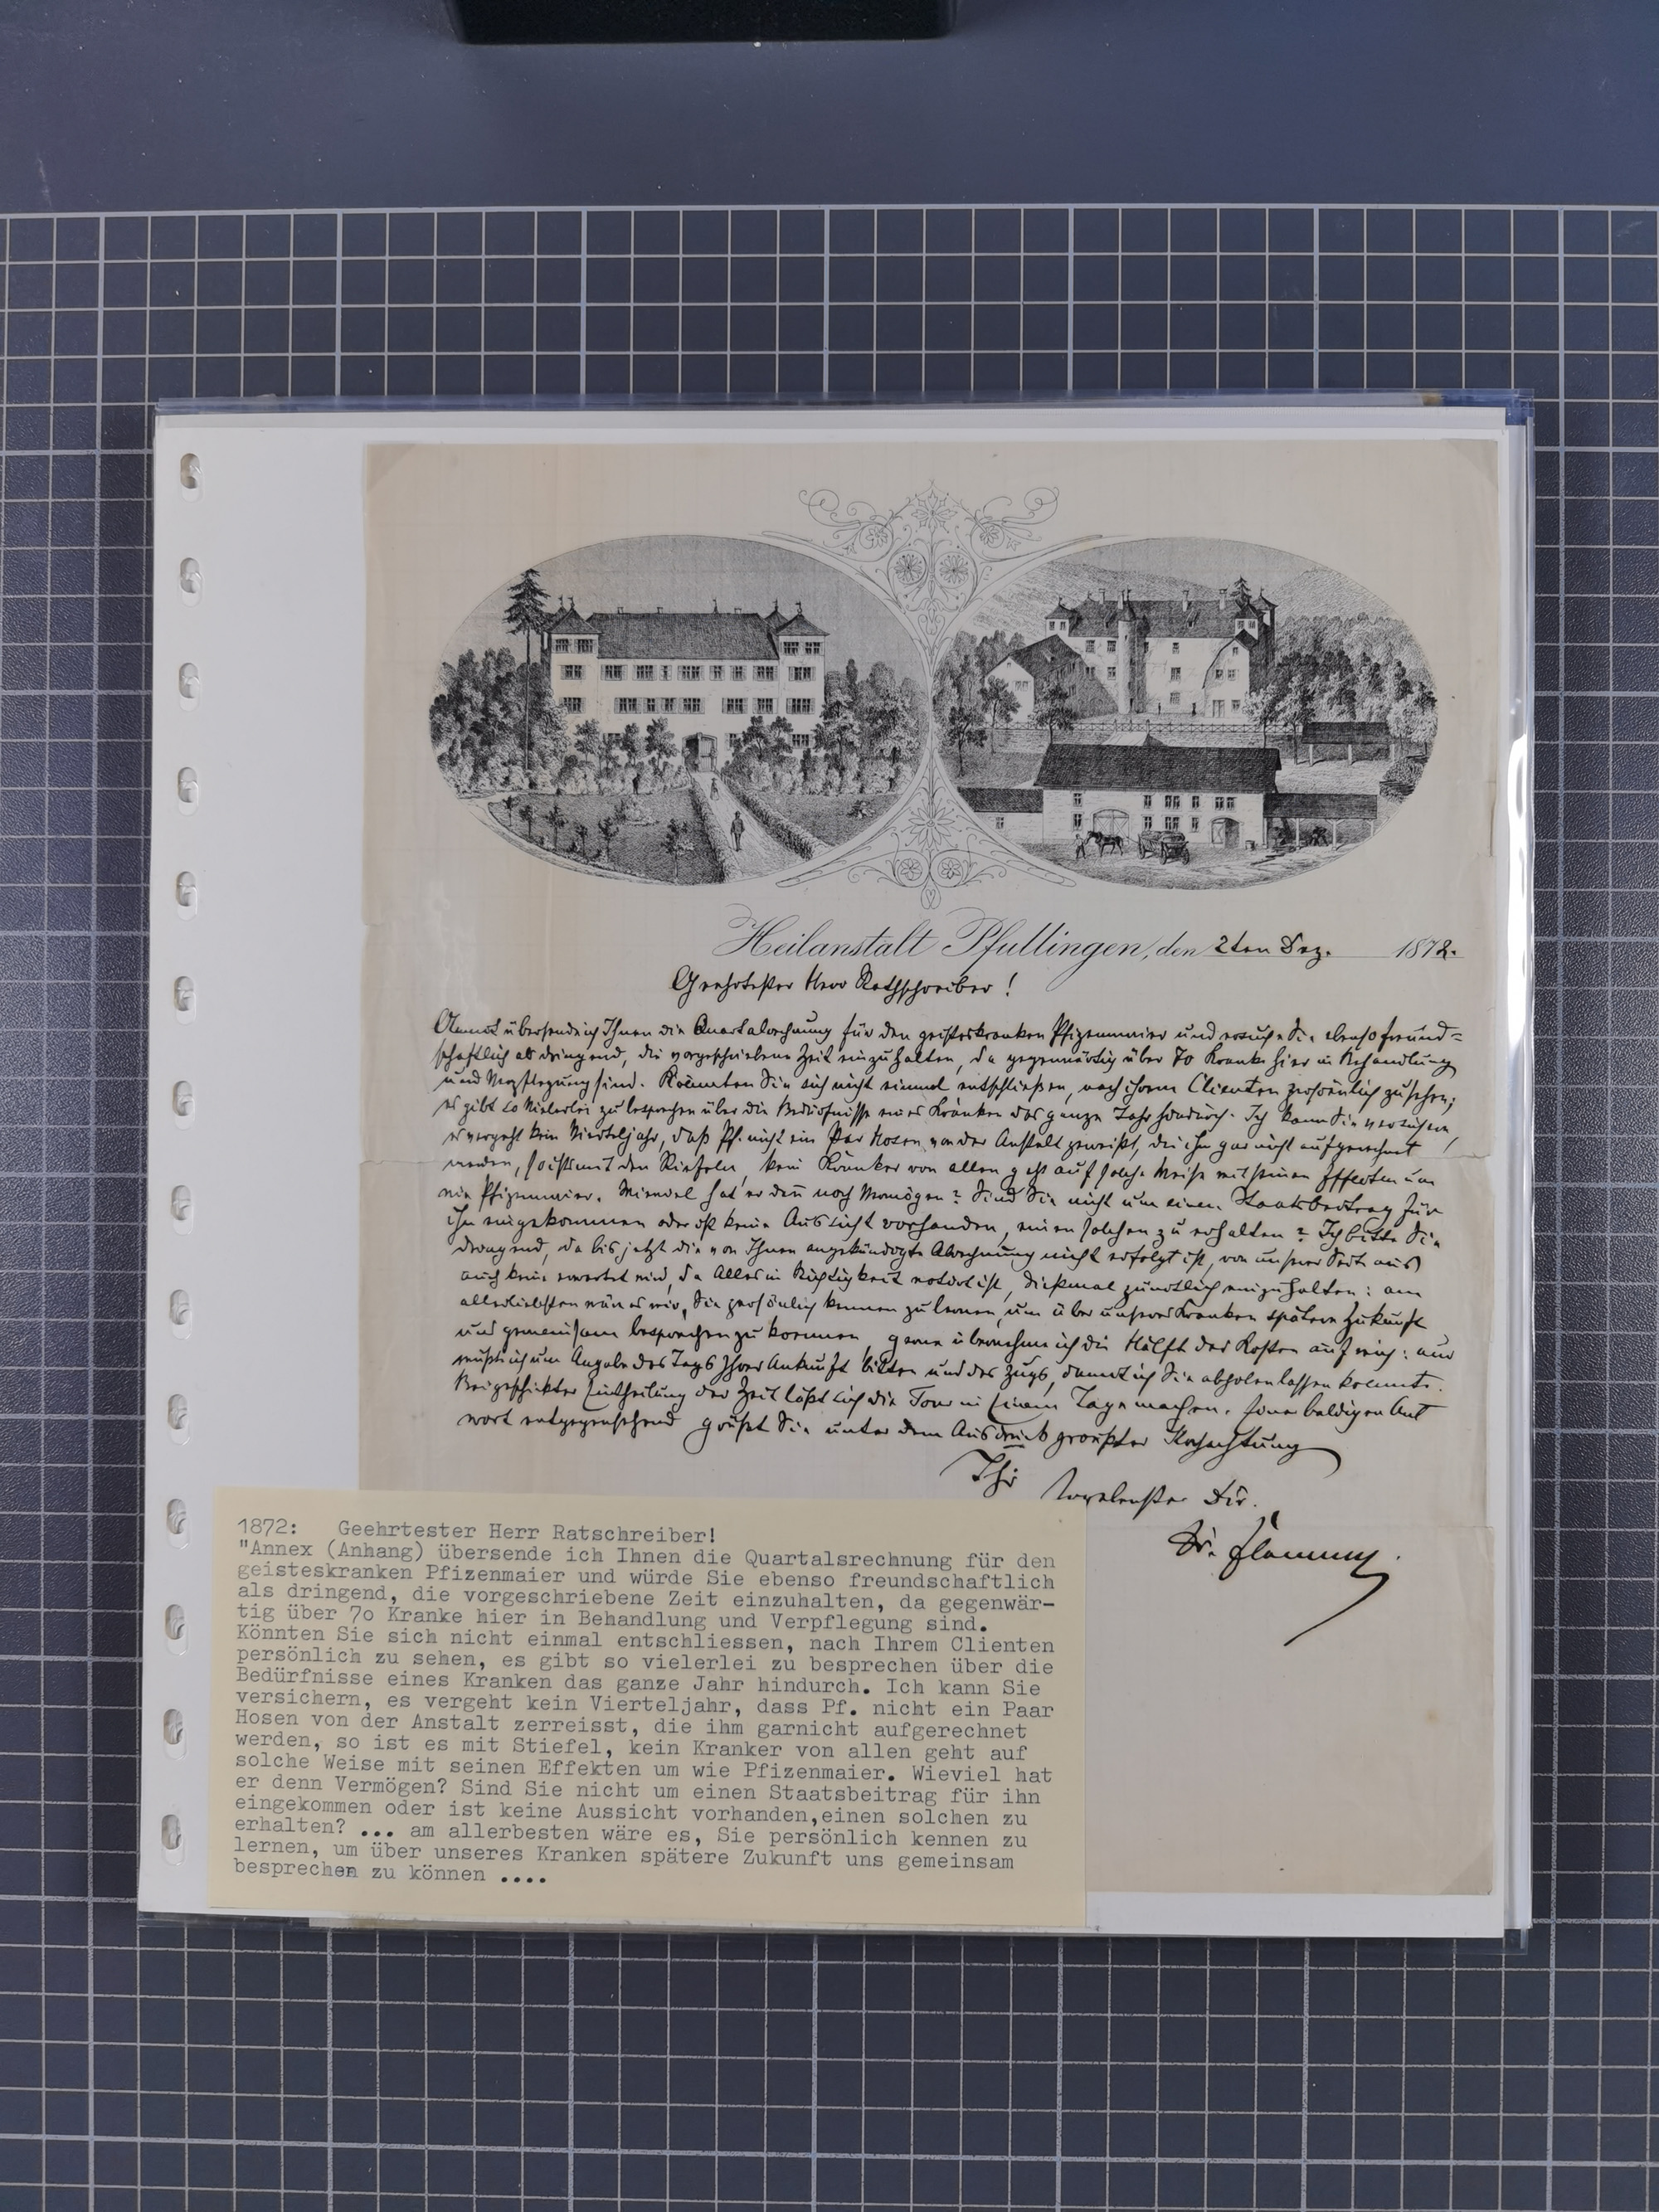 Heilanstalt Pfullingen, den 2ten Dez. 1872.
Geehrtester Herr Rathschreiber!
Annex übersende ich Ihnen die Quartalrechnung für den geisteskranken Pfizenmaier und ersuche Sie ebenso freund=
schaftlich als dringend, die vorgeschriebene Zeit einzuhalten, da gegenwärtig über 70 Kranke hier in Behandlung
und Verpflegung sind. Könnten Sie sich nicht einmal entschließen, nach ihrem Clienten persönlich zu sehen;
es gibt so Vielerlei zu besprechen über die Bedürfnisse eines Kranken das ganze Jahr hindurch. Ich kann Sie versichern,
es vergeht kein Vierteljahr, daß Pf. nicht ein Par Hosen von der Anstalt zerreißt, die ihm gar nicht aufgerechnet
werden, so ists mit den Stiefeln, kein Kranker von allen geht auf solche Weise mit seinen Effecten um
wie Pfizenmaier. Wieviel hat er den̄ noch Vermögen? Sind Sie nicht um einen Staatsbeitrag für
ihn eingekommen oder ist keine Aussicht vorhanden, einen solchen zu erhalten? Ich bitte Sie
dringend, da bis jetzt die von Ihnen angekündigte Abrechnung nicht erfolgt ist, von unserer Seite aus
auch keine erwartet wird, da Alles in Richtigkeit notirt ist, dießmal pünktlich einzuhalten: am
allerliebsten wäre es mir, Sie persönlich kennen zu lernen, um über unseres Kranken spätere Zukunft
uns gemeinsam besprechen zu koennen, gerne übernehme ich die Hälfte der Kosten auf mich: nur
müßte ich um Angabe des Tags Ihrer Ankunft bitten und des Zugs, damit ich Sie abholen lassen koennte.
Bei geschickter Eintheilung der Zeit läßt sich die Tour in Einem Tage machen. Einer baldigen Ant
wort entgegensehend grüßt Sie unter dem Ausdruck groeßter Hochachtung
Ihr
ergebenster Dir.
Dr. Flamm
1872: Geehrtester Herr Ratschreiber!
"Annex (Anhang) übersende ich Ihnen die Quartalsrechnung für den
geisteskranken Pfizenmaier und würde Sie ebenso freundschaftlich
als dringend, die vorgeschriebene Zeit einzuhalten, da gegenwär-
tig über 7o Kranke hier in Behandlung und Verpflegung sind.
Könnten Sie sich nicht einmal entschliessen, nach Ihrem Clienten
persönlich zu sehen, es gibt so vielerlei zu besprechen über die
Bedürfnisse eines Kranken das ganze Jahr hindurch. Ich kann Sie
versichern, es vergeht kein Vierteljahr, dass Pf. nicht ein Paar
Hosen von der Anstalt zerreisst, die ihm garnicht aufgerechnet
werden, so ist es mit Stiefel, kein Kranker von allen geht auf
solche Weise mit seinen Effekten um wie Pfizenmaier. Wieviel hat
er denn Vermögen? Sind Sie nicht um einen Staatsbeitrag für ihn
eingekommen oder ist keine Aussicht vorhanden,einen solchen zu
erhalten? ... am allerbesten wäre es, Sie persönlich kennen zu
lernen, um über unseres Kranken spätere Zukunft uns gemeinsam
besprechen zu können ....